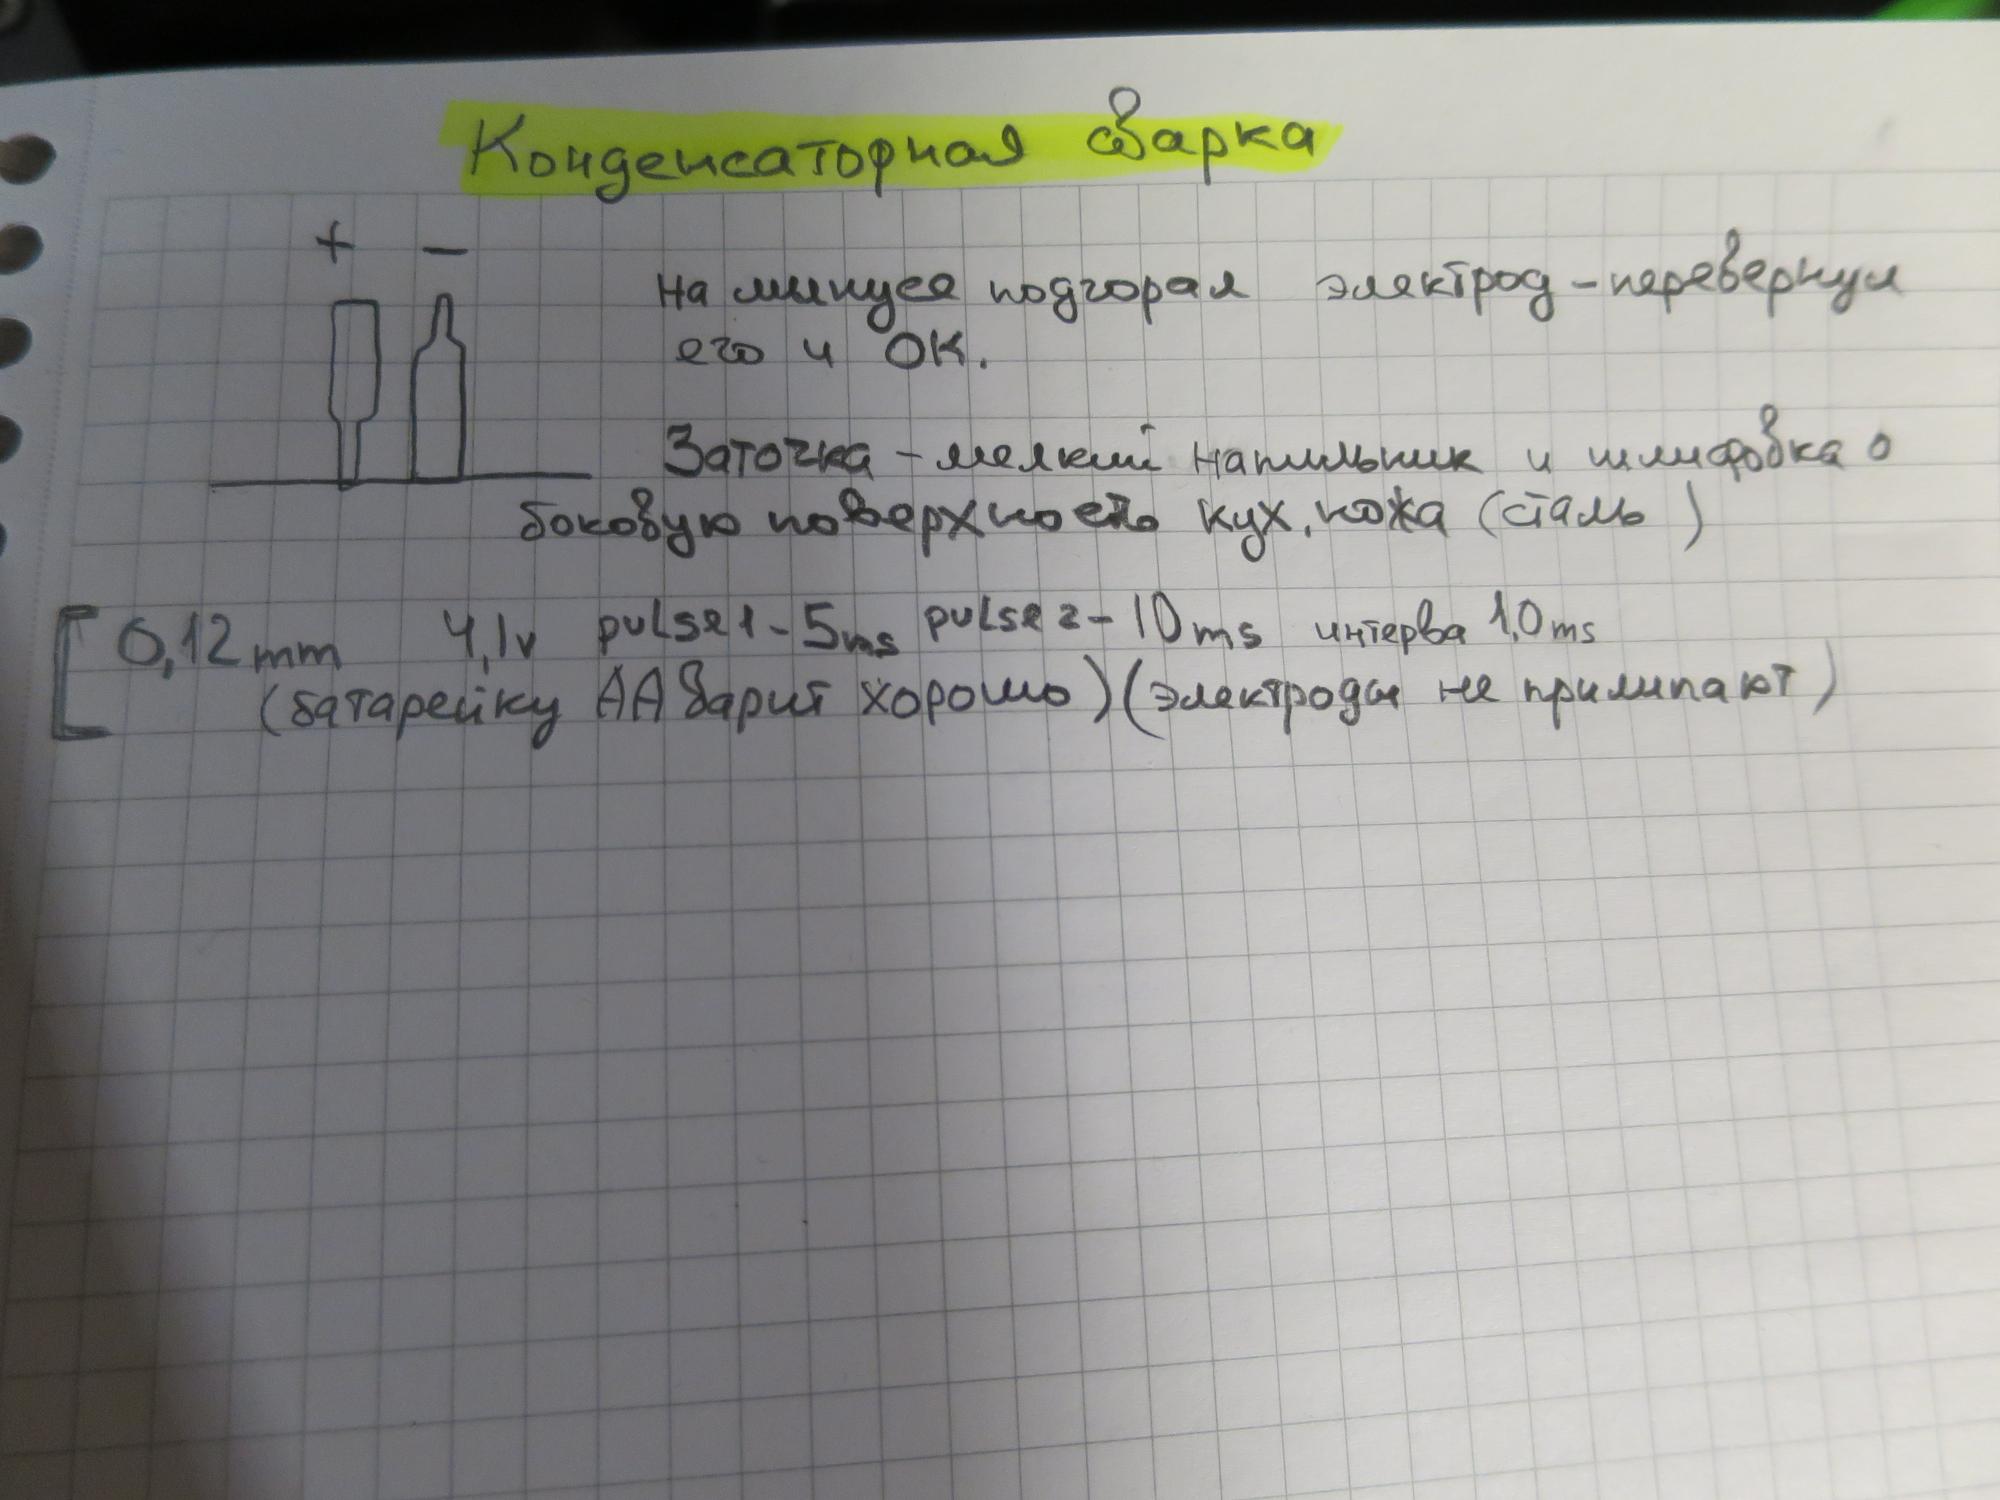 Конденсаторная сварка
+ −
на минусе подгорал электрод - перевернул
его и ОК.
Заточка - мелкий напильник и шлифовка о
боковую поверхность кух. ножа (сталь)
0,12 mm 4,1v pulse1 - 5ms pulse2 - 10ms интерва 1,0ms
(батарейку АА варит хорошо) (электроды не прилипают)